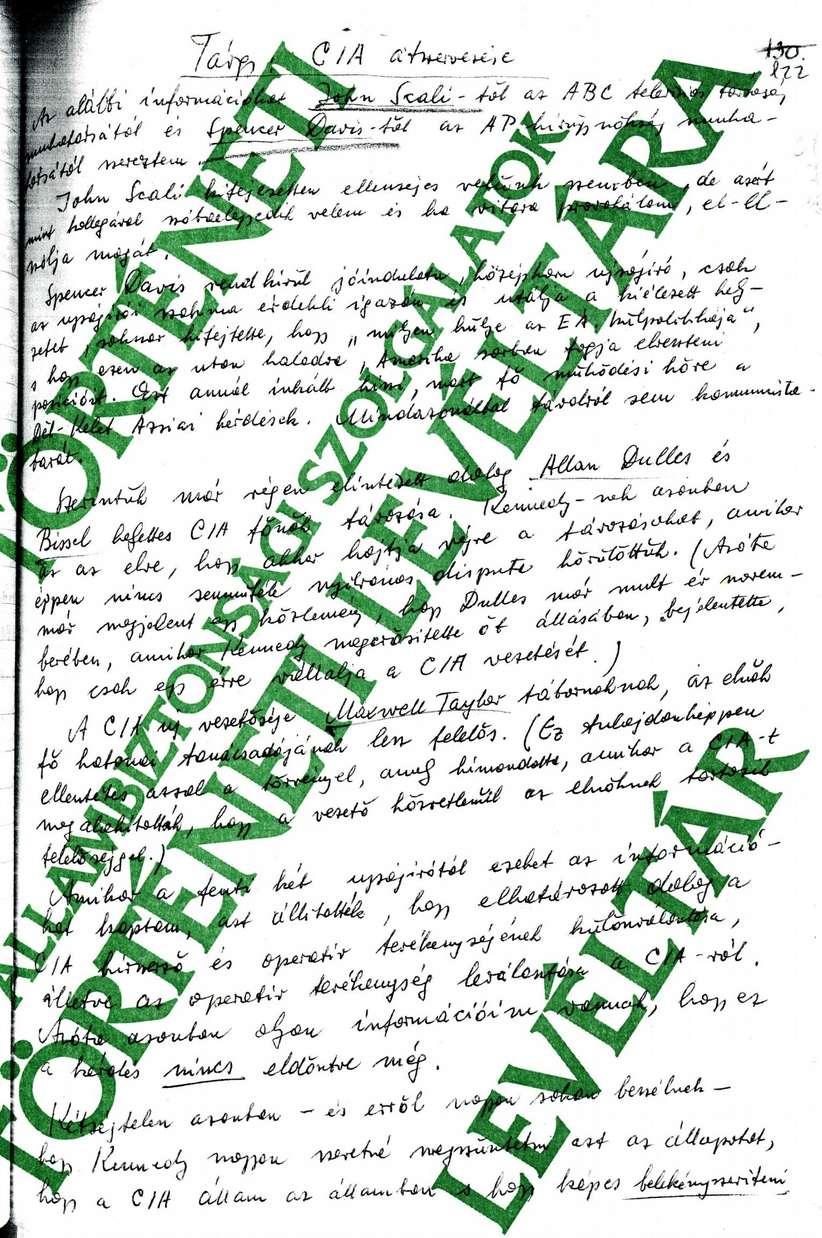 Tárgy: CIA átszervezése
130.
122
Az alábbi információkat John Scali-tól az ABC televízió társaság
munkatársától és Spencer Davis-től az AP hírügynökség munka-
társától szereztem.
John Scali kifejezetten ellenséges velünk szemben, de azért
mint kollegával szóbaelegyedik velem és ha vitára provokálom, el-el-
szólja magát.
Spencer Davis rendkívül jóindulatu, középkoru ujságíró, csak
az ujságírói szakma érdekli igazán és utálja a kiélezett hely-
zetet, sokszor kifejtette, hogy "milyen hülye az EÁ külpolitikája",
s hogy ezen az uton haladva, Amerika sorban fogja elveszteni
pozicióit. Ezt annál inkább hiszi, mert fő működési köre a
Dél-kelet Ázsiai kérdések. Mindazonáltal távolról sem kommunista-
barát.
Szerintük már régen elintézett dolog Allan Dulles és
Bissel helyettes CIA főnök távozása. Kennedy-nek azonban
az az elve, hogy akkor hajtja végre a távozásokat, amikor
éppen nincs semmiféle nyilvános disputa körülöttük. (Azóta
már megjelent egy közlemény, hogy Dulles már mult év novem-
berében, amikor Kennedy megerősítette őt állásában, bejelentette,
hogy csak egy évre vállalja a CIA vezetését.)
A CIA uj vezetősége Maxwell Taylor tábornoknak, az elnök
fő katonai tanácsadójának lesz felelős. (Ez tulajdonképpen
ellentétes azzal a törvénnyel, amely kimondotta, amikor a CIA-t
megalakították, hogy a vezető közvetlenül az elnöknek tartozik
felelősséggel.)
Amikor a fenti két ujságírótól ezeket az információ-
kat kaptam, azt állították, hogy elhatározott dolog a
CIA hírszerző és operatív tevékenységének különválasztása,
illetve az operatív tevékenység leválasztása a CIA-ról.
Azóta azonban olyan információim vannak, hogy ez
a kérdés nincs eldöntve még.
Kétségtelen azonban - és erről nagyon sokan beszélnek -
hogy Kennedy nagyon szeretné megszüntetni azt az állapotot,
hogy a CIA állam az államban s hogy képes belekényszeríteni
TÖRTÉNETI
ÁLLAMBIZTONSÁGI SZOLGÁLATOK
TÖRTÉNETI LEVÉLTÁRA
LEVÉLTÁR